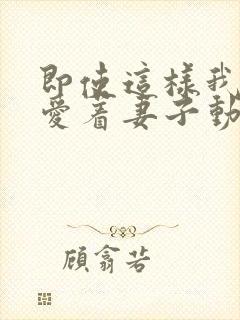 即使這樣我
愛着妻子動
顧翕若